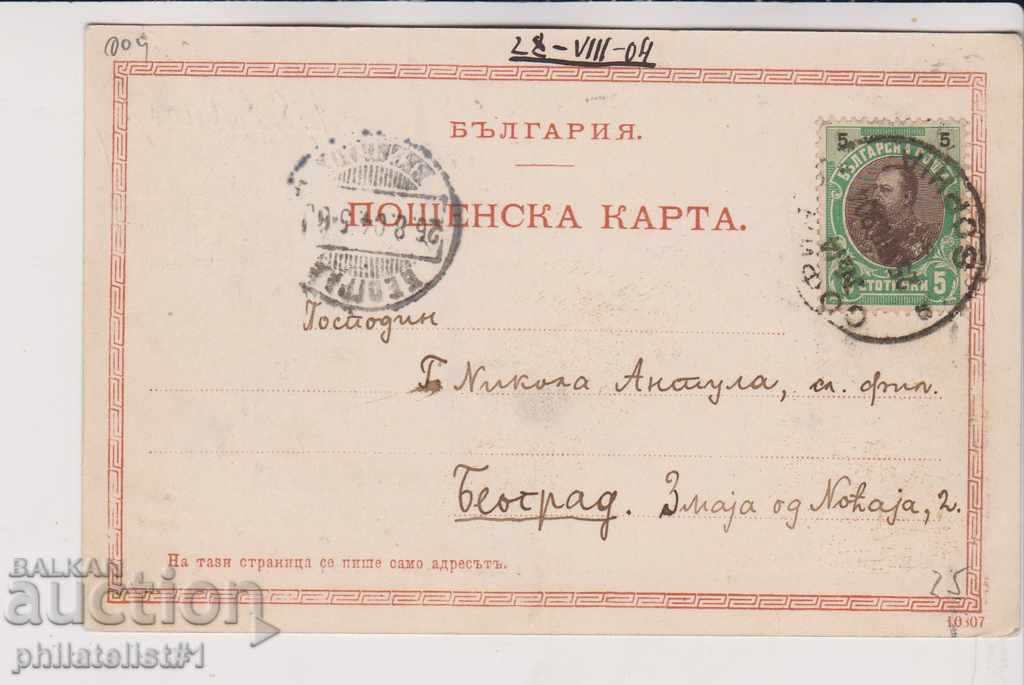 009
28-VIII-04
БЪЛГАРИЯ.
ПОЩЕНСКА КАРТА.
5 5
БЪЛГАРСКА
СТОТИНКИ 5
SOPHIA
СОФИЯ
БЕОГРАД
Господин
Г Никола Антула, ст. фил.
Београд. Змаја од Ноћаја, 2.
На тази страница се пише само адресътъ.
25
10307
BALKAN
auction
philatelist#1